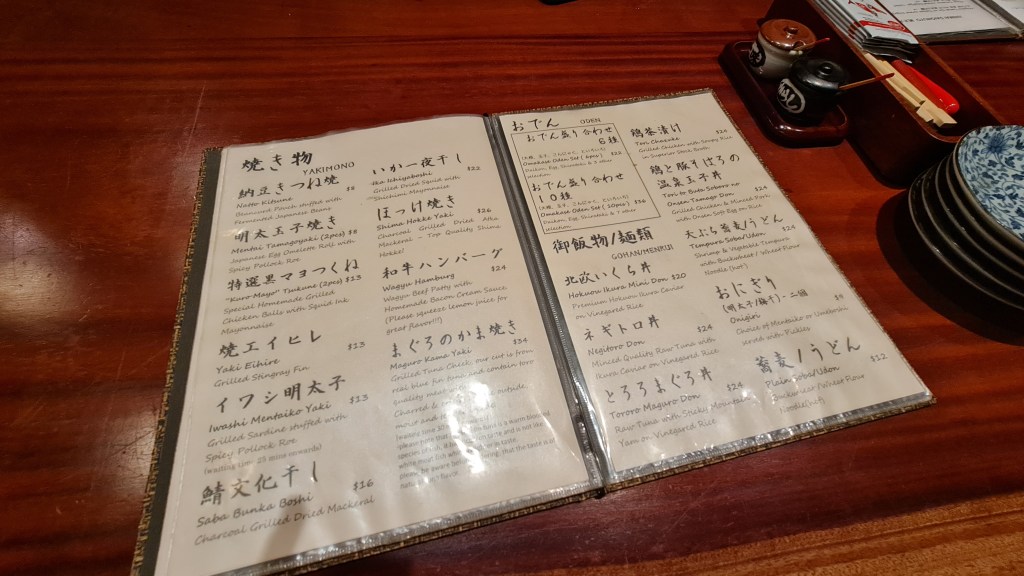 焼き物
YAKIMONO
納豆きつね焼
Natto Kitsune $8
Beancurd Pocket stuffed with
Fermented Japanese Beans
明太玉子焼き
Mentai Tamagoyaki (2pcs) $8
Japanese Egg Omelette Roll with
Spicy Pollock Roe
特選黒マヨつくね
"Kuro Mayo" Tsukune (2pcs) $13
Special Homemade Grilled
Chicken Balls with Squid Ink
Mayonnaise
焼エイヒレ
Yaki Eihire $13
Grilled Stingray Fin
イワシ明太子
Iwashi Mentaiko Yaki $13
Grilled Sardine stuffed with
Spicy Pollock Roe
鯖文化干し
Saba Bunka Boshi $16
Charcoal Grilled Dried Mackeral
いか一夜干し
Ika Ichiyaboshi $22
Grilled Dried Squid with
"Shichimi" Mayonnaise
ほっけ焼き
Shima Hokke Yaki $26
Charcoal Grilled Dried Atka
Mackeral - Top Quality Shima
Hokke!
和牛ハンバーグ
Wagyu Hamburg $24
Wagyu Beef Patty with
Homemade Bacon Cream Sauce
(Please squeeze lemon juice for
great flavor!!!)
まぐろのかま焼き
Maguro Kama Yaki $34
Grilled Tuna Cheek, our cut is from
real blue fin tuna and contain toro
quality meat
おでん ODEN
おでん盛り合わせ
6種
Omakase Oden Set (6pcs) $22
Daikon, Egg, Shirataki & 3 other
selection
おでん盛り合わせ
10種
Omakase Oden Set (10pcs) $36
Daikon, Egg, Shirataki & 7 other
selection
御飯物/麺類
GOHAN/MENRUI
北欧いくら丼
Hokuou Ikura Mini Don $20
Premium Hokuou Ikura Caviar
on Vinegared Rice
ネギトロ丼
Negitoro Don $24
Minced Quality Raw Tuna with
Ikura Caviar on Vinegared Rice
とろろまぐろ丼
Tororo Maguro Don $24
Raw Tuna with Sticky Mountain
Yam on Vinegared Rice
鶏茶漬け
Tori Chazuke $24
Grilled Chicken with Soupy Rice
in Superior Stock Broth
鶏と豚そぼろの
温泉玉子丼
Tori to Buta Soboro no
Onsen Tamago Don $24
Grilled Chicken & Minced Pork
with Onsen Soft Egg on Rice
天ぷら蕎麦/うどん
Tempura Soba/Udon $24
Shrimp & Vegetable Tempura
with Buckwheat / Wheat Flour
Noodle (hot)
おにぎり
(明太子/梅干し)・二個
Onigiri $9
Choice of Mentaiko or Umeboshi
served with Pickles
蕎麦/うどん
Plain Soba/Udon $12
Buckwheat/Wheat Flour
Noodle (hot)